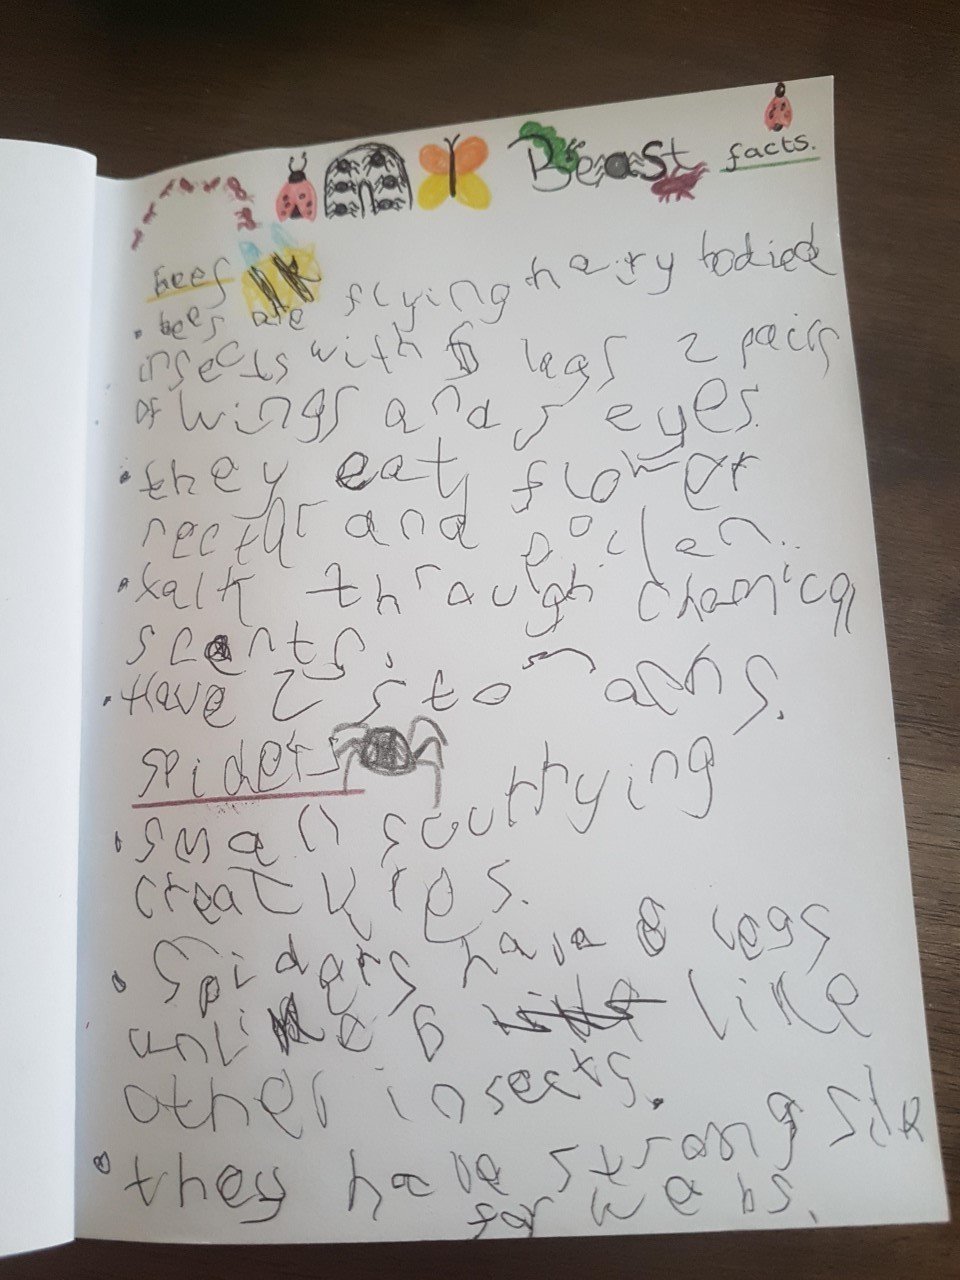 Mini Beast facts.
bees
• bees are flying hairy bodied
insects with 6 legs 2 pairs
of wings and 5 eyes.
• they eat flower
nectar and pollen.
• talk through chemical
scents.
• Have 2 stomachs.
spiders
• small scurrying
creatures.
• Spiders have 8 legs
6 like
other insects.
• they have strong silk
for webs.